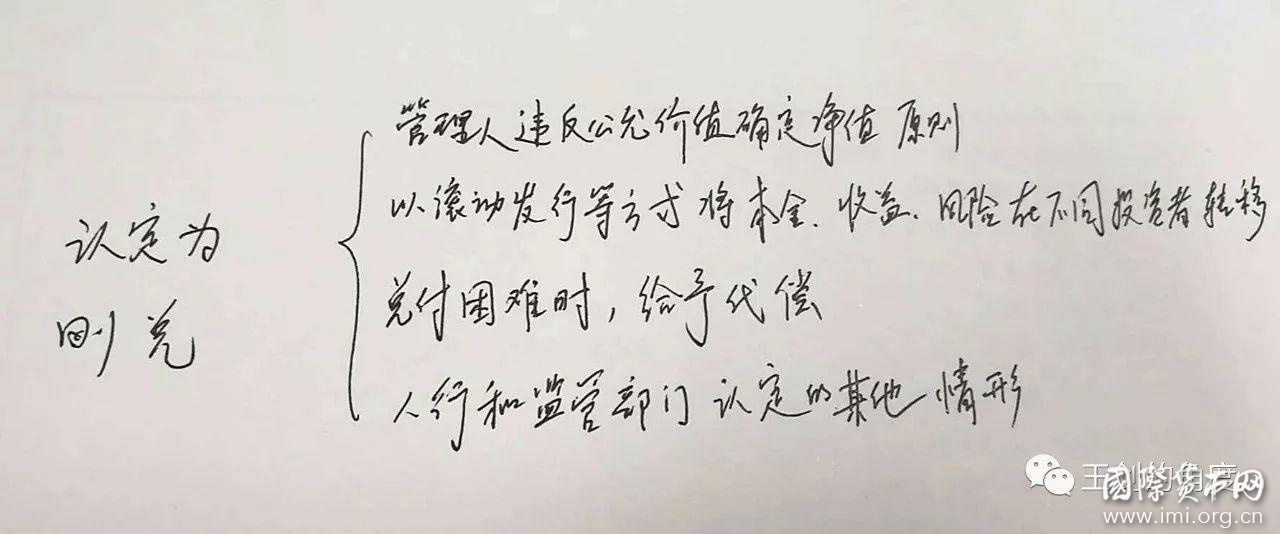 认定为
刚兑
管理人违反公允价值确定净值原则
以滚动发行等方式将本金、收益、风险在不同投资者转移
兑付困难时，给予代偿
人行和监管部门认定的其他情形
国际货币网
www.imi.org.cn